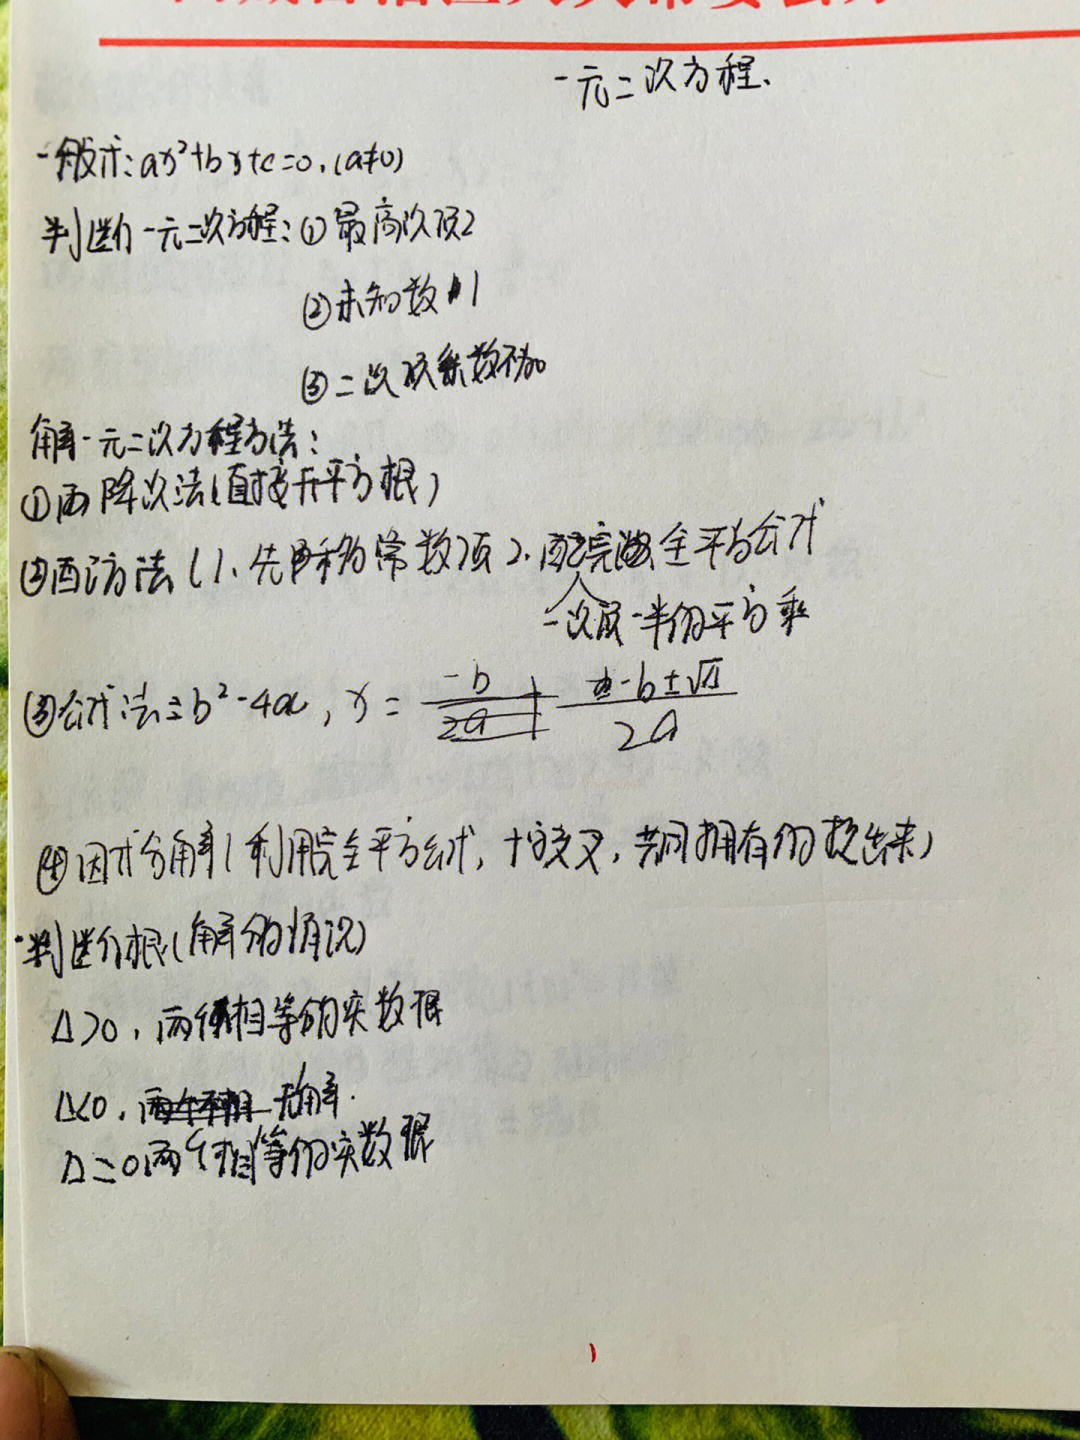 一元二次方程、
一般式:ax²+bx+c=0,(a≠0)
判断一元二次方程:①最高次项2
②未知数1
③二次项系数不为0
解一元二次方程方法:
①降次法(直接开平方根)
②配方法(1、先移常数项2、配完全平方公式
一次项一半的平方乘
③公式法:b²-4ac,x= -b±√Δ / 2a
④因式分解(利用完全平方公式,十字交叉,共同拥有的提出来)
判断根(解的情况)
Δ>0,两个相等的实数根
Δ<0,无解.
Δ=0两个相等的实数根
1